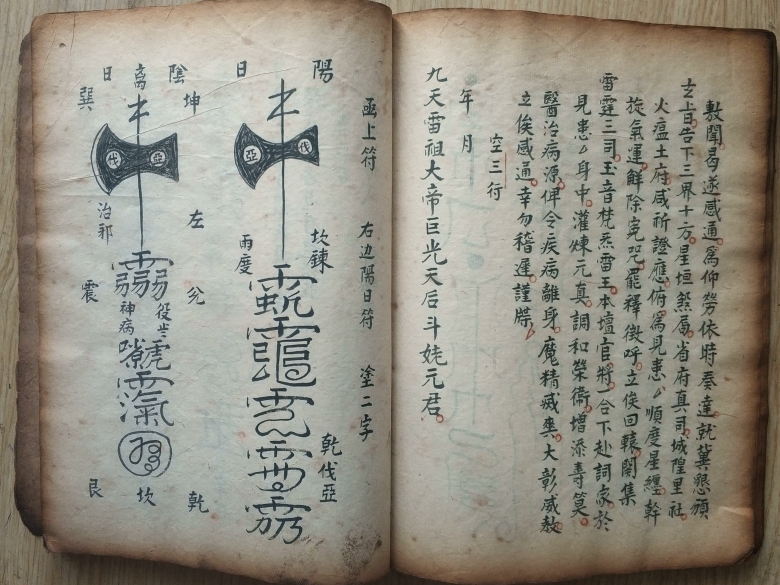 敷聞曷遂感通爲仰勞依時奏達就冀懇頒
玄上日告下三界十方星垣煞属省府真司城隍里社
火瘟土府咸祈證應俯爲見患厶順度星纏幹
旋氣運觧除寃咒罷釋徵呼立俟回轅関集
雷霆三司玉音梵炁雷王本壇官將一合下赴詞家於
見患厶身中灌煉元真調和榮衛增添壽筭
醫治病源俾令疾病離身魔精滅爽大彰威赦
立俟感通幸勿稽遲謹牒
空三行
年 月
九天雷祖大帝巨光天后斗姥元君
函上符 右边陽日符 塗二字
陽 坎鍊 乾伐亞
日 雨度
亞 伐
陰 坤 左 兊 乾
离 坎
日 巽 治邪 震 艮
伐 亞
神病